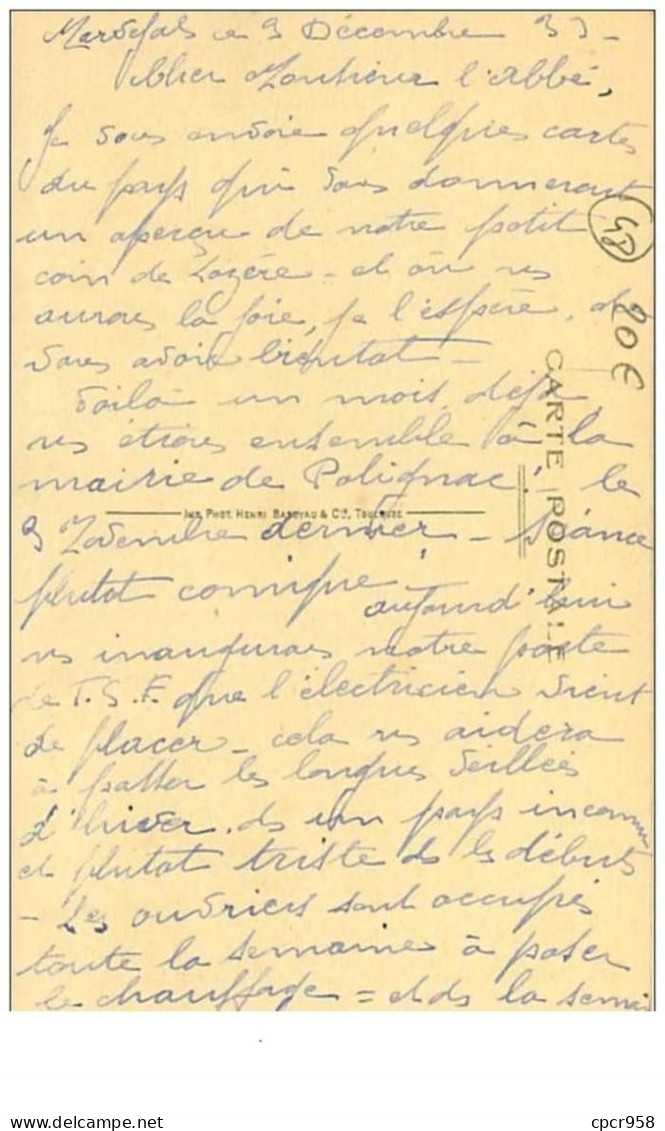 Marvejols ce 3 Décembre 33 -
Cher Monsieur l'Abbé,
Je vous envoie quelques cartes
du pays qui vous donneront
un aperçu de notre petit
coin de Lozère - et où ns
aurons la joie, je l'espère, de
vous avoir bientôt -
Voilà un mois déjà,
ns étions ensemble à la
mairie de Polignac, le
3 Novembre dernier - Séance
plutot comique - aujourd'hui
ns inaugurons notre poste
de T.S.F. que l'électricien vient
de placer - cela ns aidera
à passer les longues veillées
d'hiver ds un pays inconnu
et plutot triste ds les débuts
- Les ouvriers sont occupés
toute la semaine à poser
le chauffage = et ds la semai
GD
20€
CARTE POSTALE
Imp. Phot. Henri Basuyau & Cie, Toulouse
cpcr958